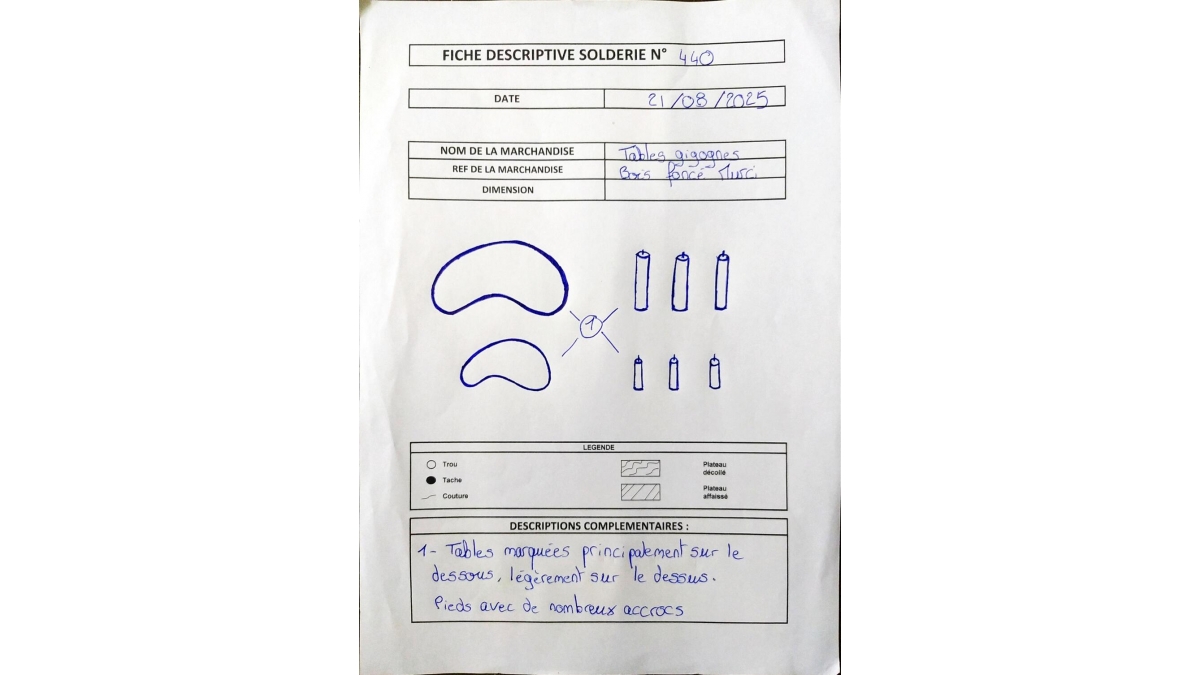 FICHE DESCRIPTIVE SOLDERIE N° 440
DATE 21/08/2025
NOM DE LA MARCHANDISE Tables gigognes
REF DE LA MARCHANDISE Bois foncé Murci
DIMENSION
1
LEGENDE
Trou
Plateau
décollé
Tache
Plateau
affaissé
Couture
DESCRIPTIONS COMPLEMENTAIRES :
1- Tables marquées principalement sur le
dessous, légèrement sur le dessus.
Pieds avec de nombreux accrocs